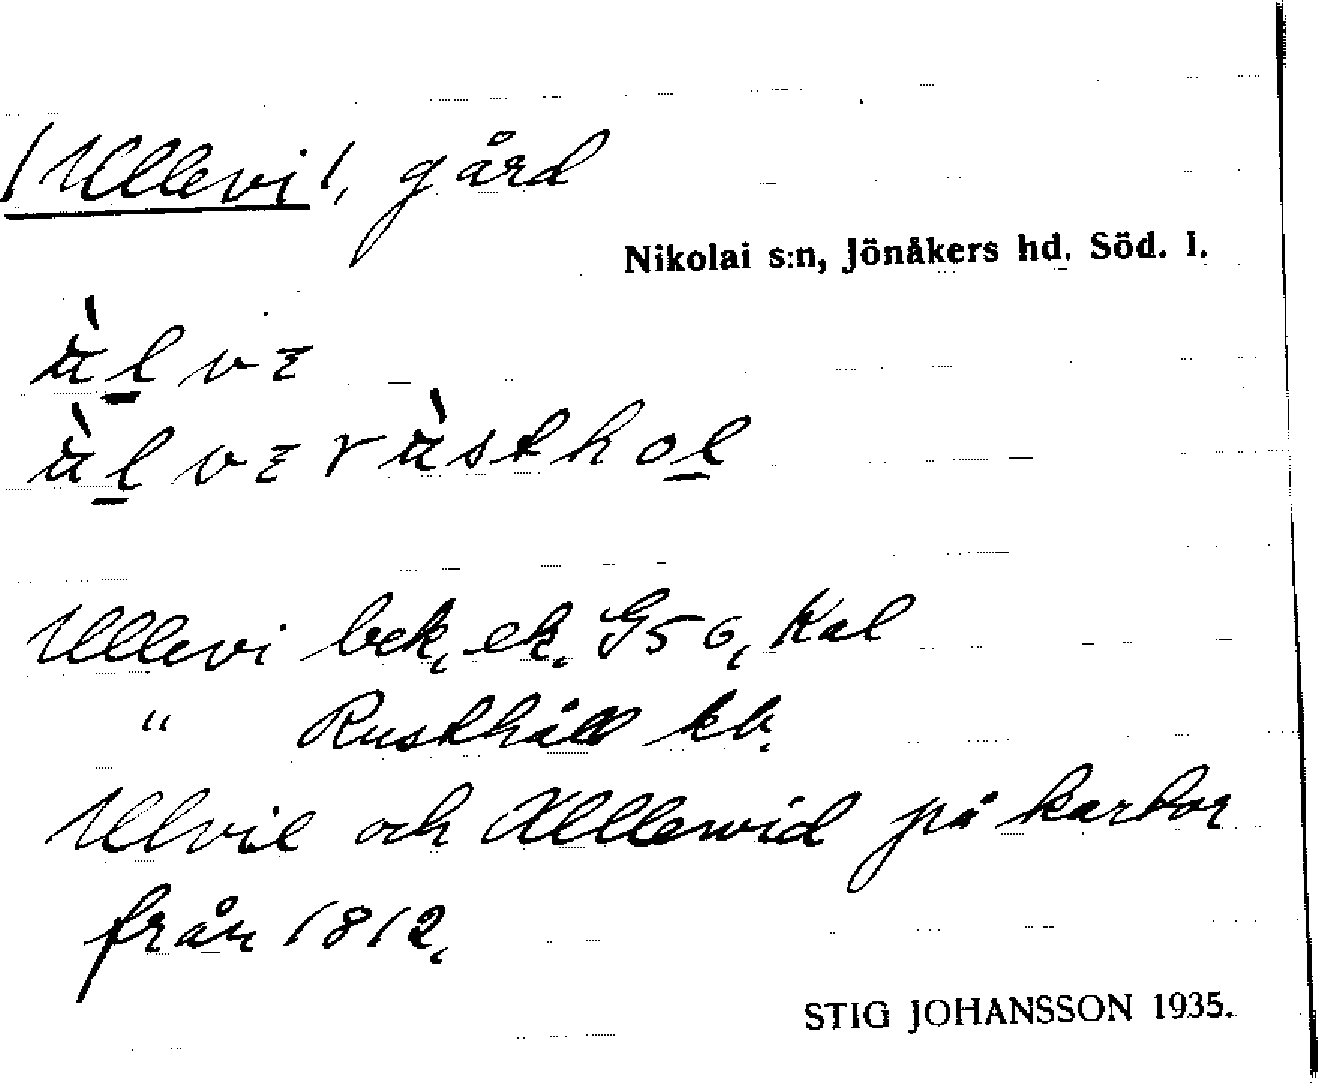 /Ullevi/, gård
Nikolai s:n, Jönåkers hd. Söd. l.
Ullevi bek, ek. G5 6, Kal
" Rusthåll kb.
Ulvil och Ullewid på kartor
från 1812.
STIG JOHANSSON 1935.